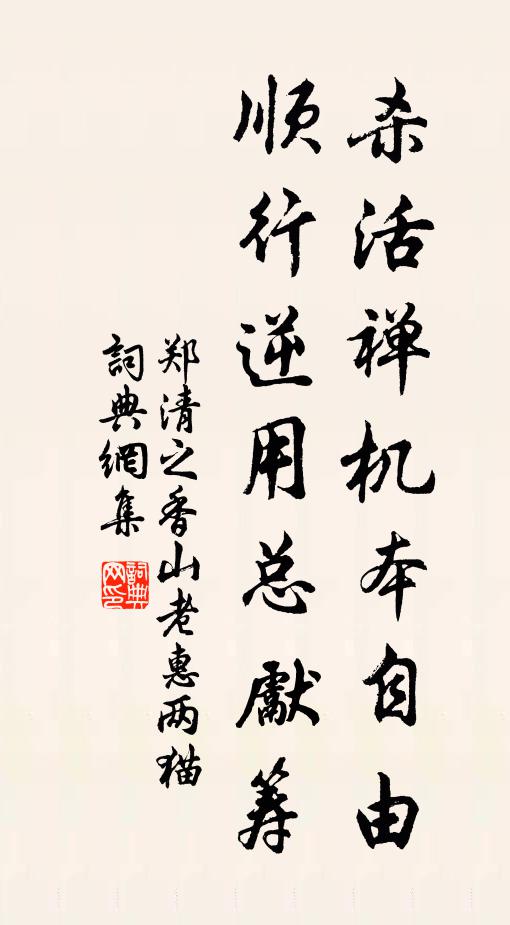 杀活禅机本自由
顺行逆用总献筹
郑清之香山老惠两猫
詞典網集
詞典网印